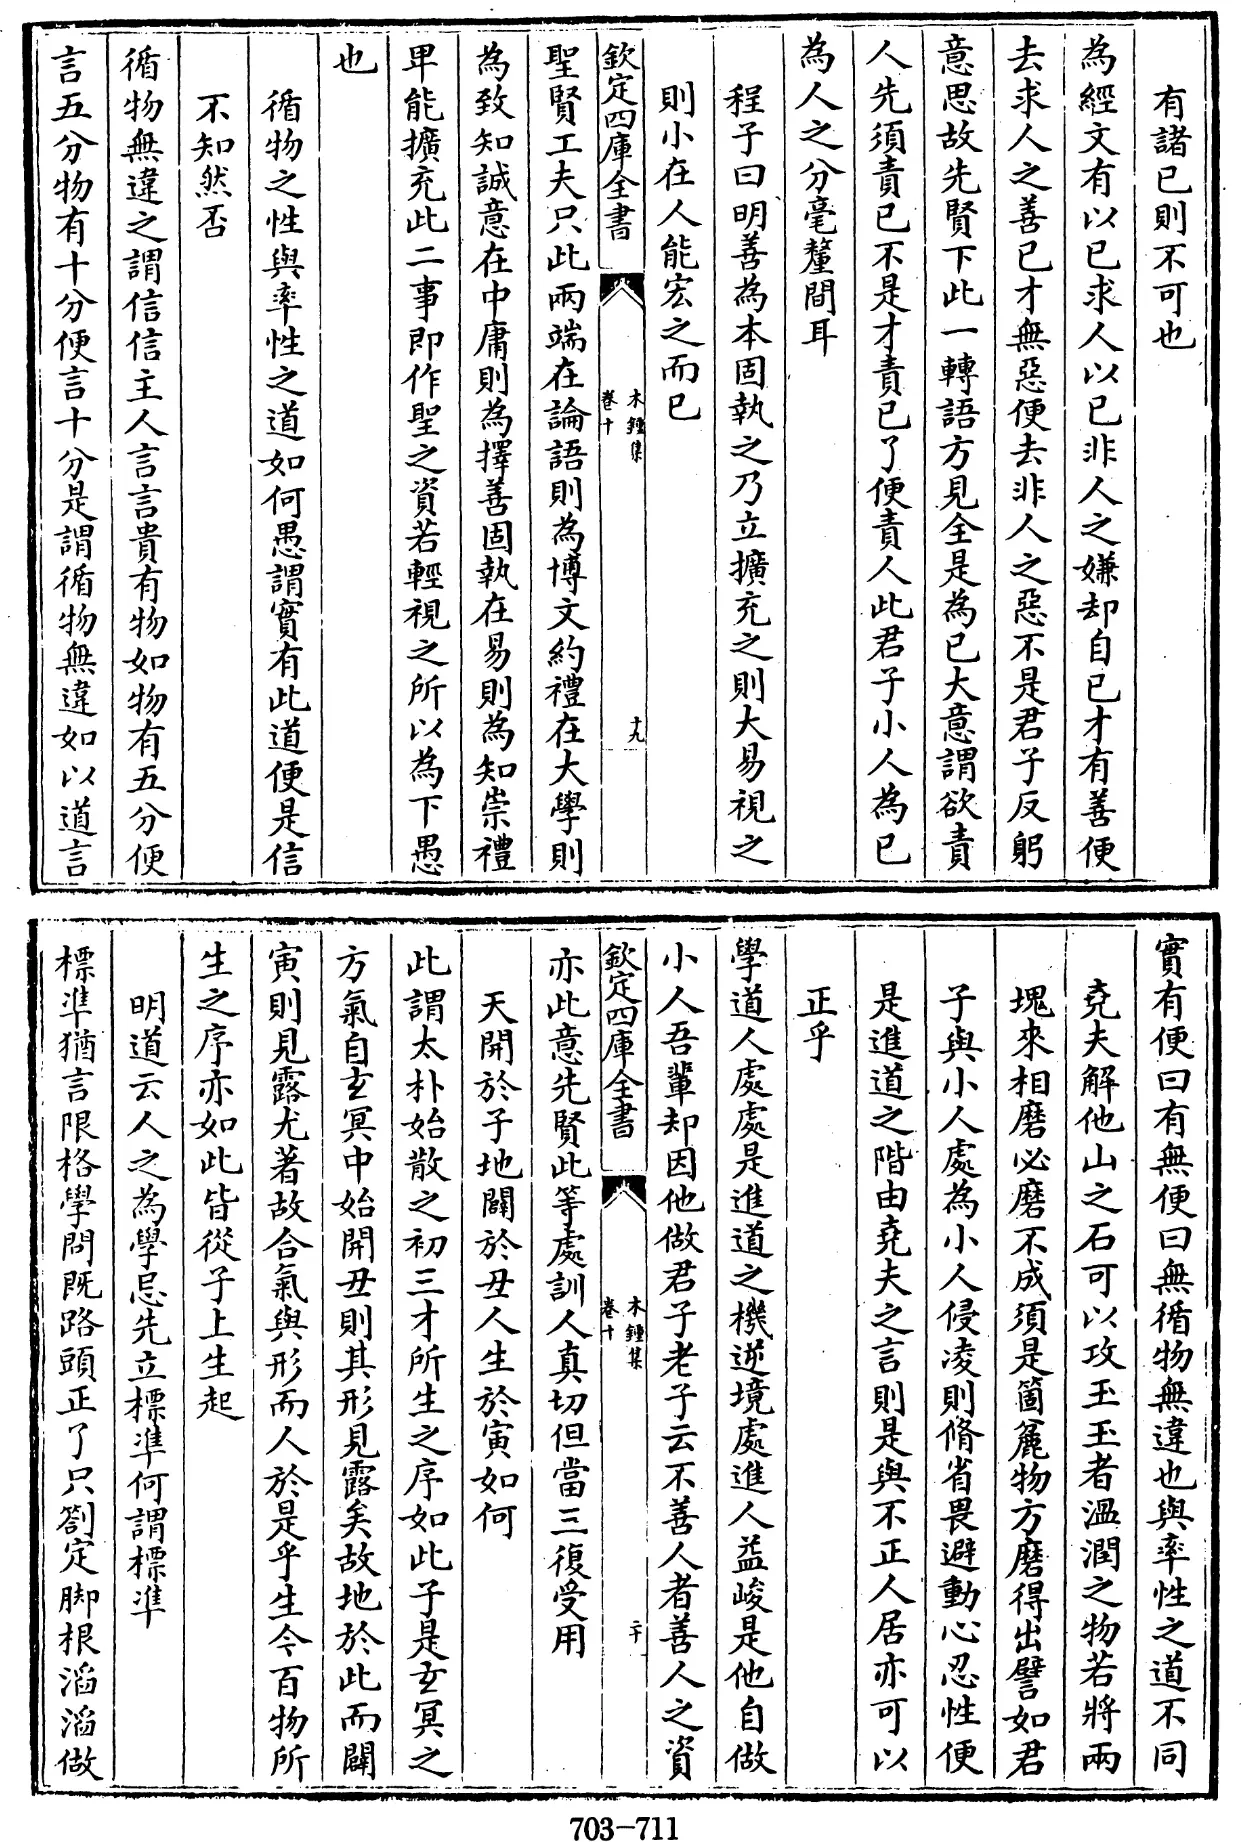 有諸已則不可也
為經文有以已求人以已非人之嫌却自已才有善便
去求人之善已才無惡便去非人之惡不是君子反躬
意思故先賢下此一轉語方見全是為已大意謂欲責
人先須責已不是才責已了便責人此君子小人為已
為人之分毫釐間耳
程子曰明善為本固執之乃立擴充之則大易視之
則小在人能宏之而已
欽定四庫全書
木鍾集
卷十
十九
聖賢工夫只此兩端在論語則為博文約禮在大學則
為致知誠意在中庸則為擇善固執在易則為知崇禮
卑能擴充此二事即作聖之資若輕視之所以為下愚
也
循物之性與率性之道如何愚謂實有此道便是信
不知然否
循物無違之謂信信主人言言貴有物如物有五分便
言五分物有十分便言十分是謂循物無違如以道言
實有便曰有無便曰無循物無違也與率性之道不同
堯夫解他山之石可以攻玉玉者溫潤之物若將兩
塊來相磨必磨不成須是箇麄物方磨得出譬如君
子與小人處為小人侵凌則脩省畏避動心忍性便
是進道之階由堯夫之言則是與不正人居亦可以
正乎
學道人處處是進道之機逆境處進人益峻是他自做
小人吾輩却因他做君子老子云不善人者善人之資
欽定四庫全書
木鍾集
卷十
二十
亦此意先賢此等處訓人真切但當三復受用
天開於子地闢於丑人生於寅如何
此謂太朴始散之初三才所生之序如此子是玄冥之
方氣自玄冥中始開丑則其形見露矣故地於此而闢
寅則見露尤著故合氣與形而人於是乎生今百物所
生之序亦如此皆從子上生起
明道云人之為學忌先立標準何謂標準
標準猶言限格學問既路頭正了只劄定脚根滔滔做
703-711